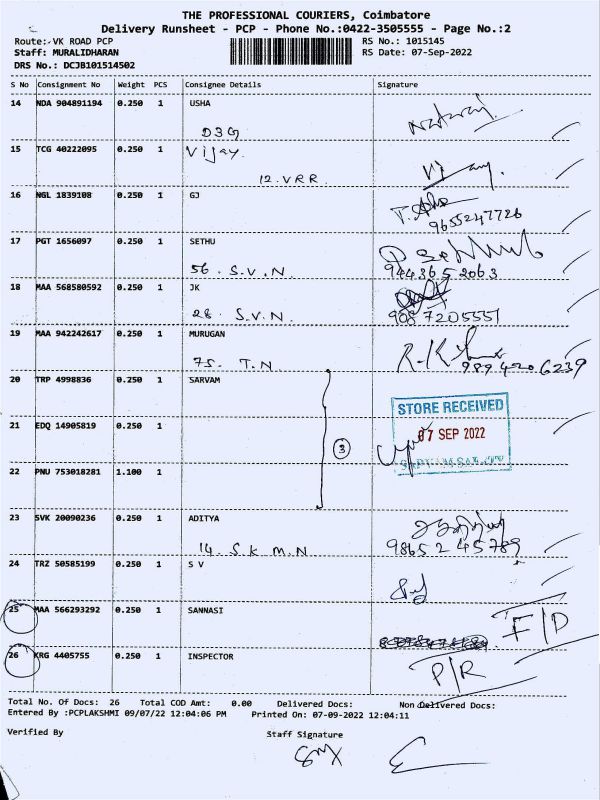 THE PROFESSIONAL COURIERS, Coimbatore
Delivery Runsheet - PCP - Phone No.:0422-3505555 - Page No.:2
Route:- VK ROAD PCP
RS No.: 1015145
Staff: MURALIDHARAN
RS Date: 07-Sep-2022
DRS No.: DCJB101514502
S No Consignment No Weight PCS Consignee Details Signature
14 NDA 904891194 0.250 1 USHA
D3G
15 TCG 40222095 0.250 1 Vijay.
12. VRR.
16 NGL 1839108 0.250 1 GJ
9655247726
17 PGT 1656097 0.250 1 SETHU
56. S.V.N. 9443652063
18 MAA 568580592 0.250 1 JK
28. S.V.N. 9087205551
19 MAA 942242617 0.250 1 MURUGAN
75. T.N. 9894206239
20 TRP 4998836 0.250 1 SARVAM
STORE RECEIVED
21 EDQ 14905819 0.250 1
07 SEP 2022
3
22 PNU 753018281 1.100 1
23 SVK 20090236 0.250 1 ADITYA
14. S.K.M.N. 9865245789
24 TRZ 50585199 0.250 1 S V
25 MAA 566293292 0.250 1 SANNASI
F/D
26 KRG 4405755 0.250 1 INSPECTOR
P/R
Total No. Of Docs: 26 Total COD Amt: 0.00 Delivered Docs: Non Delivered Docs:
Entered By :PCPLAKSHMI 09/07/22 12:04:06 PM Printed On: 07-09-2022 12:04:11
Verified By Staff Signature